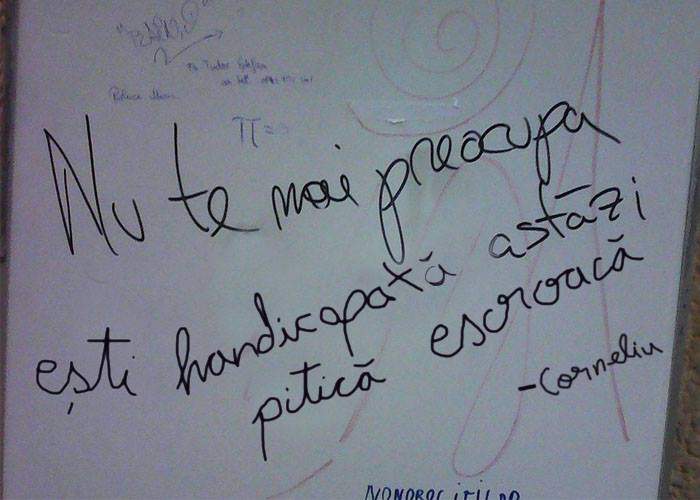 π =>
Nu te mai preocupa
ești handicapată astăzi
pitică escroacă
-Corneliu